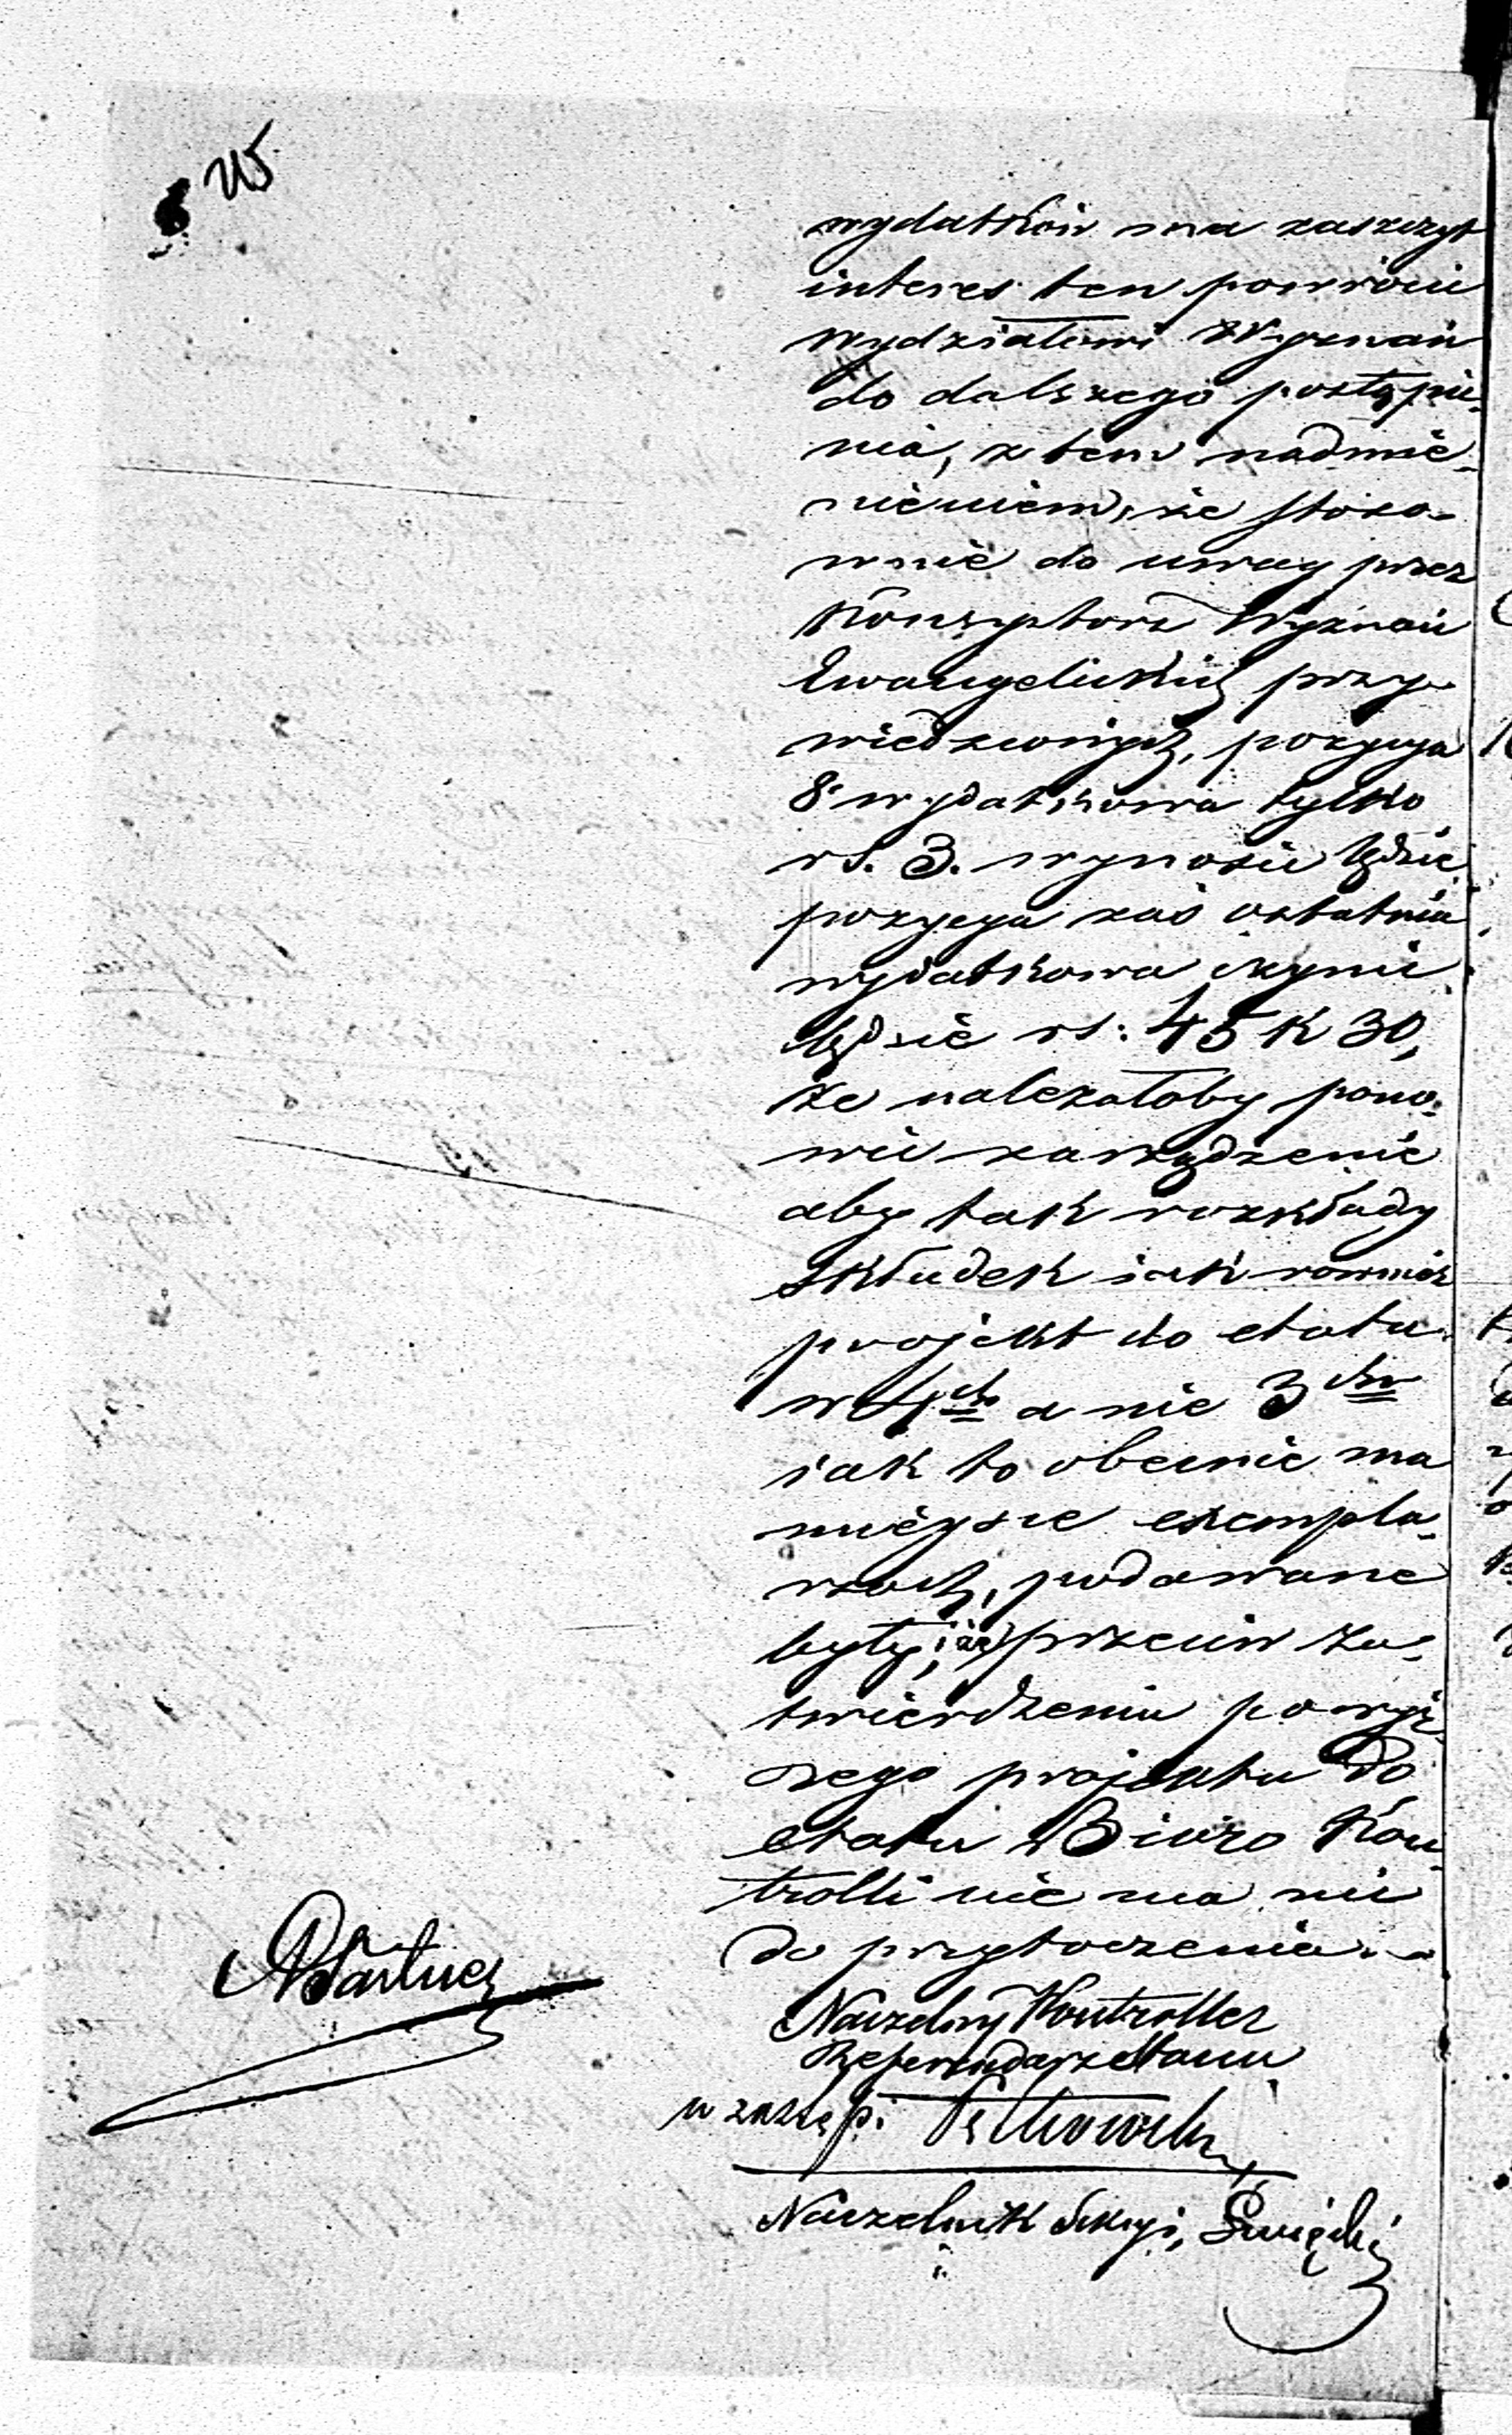 215
wydatków ma zaszczyt
interes ten powrócić
Wydziałowi Wyznań
do dalszego postąpie-
nia, z tem nadmie-
nieniem, że stoso-
wnie do uwag przez
Konsystorz Wyznań
Ewangelickich przy-
wiedzionych, pozycya
8 wydatkowa tylko
rs. 3. wynosić będzie
pozycya zaś ostatnia
wydatkowa czynić
będzie rs: 45 k 30,
że należałoby pono-
wić zarządzenie
aby tak rozkłady
składek iak rownież
projekt do etatu
w 4ch a nie 3ch
iak to obecnie ma
mieysce exempla-
rzach, podawane
były; że przeciw za-
twierdzeniu powyż-
szego projektu do
etatu Biuro Kon-
trolli nie ma nic
do przytoczenia.
Naczelny Kontroller
Referendarz Stanu
w zastęp:
Naczelnik Sekcyi, Święcki